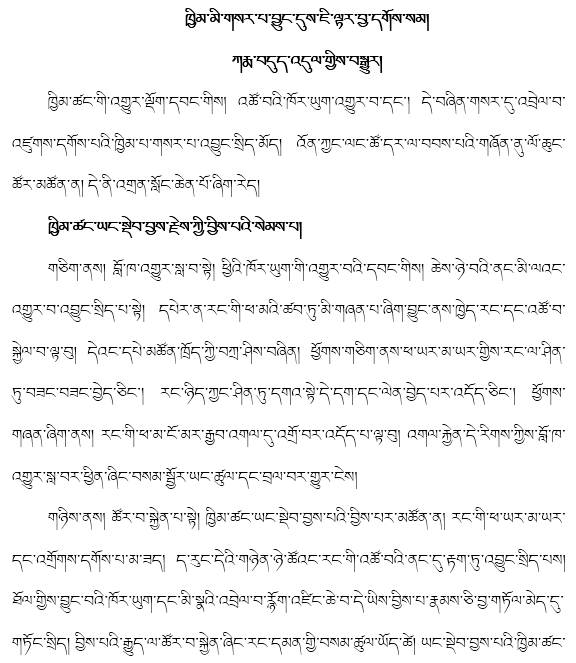 ཁྱིམ་མི་གསར་པ་བྱུང་དུས་ཇི་ལྟར་བྱ་དགོས་སམ།
ཀརྨ་བདུད་འདུལ་གྱིས་བསྒྱུར།
ཁྱིམ་ཚང་གི་འགྱུར་ལྡོག་དབང་གིས། འཚོ་བའི་ཁོར་ཡུག་འགྱུར་བ་དང་། དེ་བཞིན་གསར་དུ་འབྲེལ་བ་
འཛུགས་དགོས་པའི་ཁྱིམ་པ་གསར་པ་འབྱུང་སྲིད་མོད། འོན་ཀྱང་ལང་ཚོ་དར་ལ་བབས་པའི་གཞོན་ནུ་ལོ་ཆུང་
ཚོར་མཚོན་ན། དེ་ནི་འགྲན་སློང་ཆེན་པོ་ཞིག་རེད།
ཁྱིམ་ཚང་ཡང་སྡེབ་བྱས་རྗེས་ཀྱི་བྱིས་པའི་སེམས་པ།
གཅིག་ནས། བློ་ཁ་འགྱུར་སླ་བ་སྟེ། ཕྱིའི་ཁོར་ཡུག་གི་འགྱུར་བའི་དབང་གིས། ཆེས་ཉེ་བའི་ནང་མི་ལའང་
འགྱུར་བ་འབྱུང་སྲིད་པ་སྟེ། དཔེར་ན་རང་གི་ཕ་མའི་ཚབ་ཏུ་མི་གཞན་པ་ཞིག་བྱུང་ནས་ཁྱེད་རང་དང་འཚོ་བ་
སྐྱེལ་བ་ལྟ་བུ། དེའང་དཔེ་མཚོན་ཁྲོད་ཀྱི་བཀྲ་ཤིས་བཞིན། ཕྱོགས་གཅིག་ནས་ཕ་ཡར་མ་ཡར་གྱིས་རང་ལ་ཤིན་
ཏུ་བཟང་བཟང་བྱེད་ཅིང་། རང་ཉིད་ཀྱང་ཤིན་ཏུ་དགའ་སྟེ་དེ་དག་དང་ལེན་བྱེད་པར་འདོད་ཅིང་། ཕྱོགས་
གཞན་ཞིག་ནས། རང་གི་ཕ་མ་ངོ་མར་རྒྱབ་འགལ་དུ་འགྲོ་བར་འདོད་པ་ལྟ་བུ། འགལ་རྐྱེན་དེ་རིགས་ཀྱིས་བློ་ཁ་
འགྱུར་སླ་བར་ཕྱིན་ཞིང་བསམ་སྦྱོར་ཡང་ཚུལ་དང་བྲལ་བར་གྱུར་ངེས།
གཉིས་ནས། ཚོར་བ་སྐྱེན་པ་སྟེ། ཁྱིམ་ཚང་ཡང་སྡེབ་བྱས་པའི་བྱིས་པར་མཚོན་ན། རང་གི་ཕ་ཡར་མ་ཡར་
དང་འགྲོགས་དགོས་པ་མ་ཟད། ད་རུང་དེའི་གཉེན་ཉེ་ཚོའང་རང་གི་འཚོ་བའི་ནང་དུ་རྟག་ཏུ་འབྱུང་སྲིད་པས།
ཐོལ་གྱིས་བྱུང་བའི་ཁོར་ཡུག་དང་མི་སྣའི་འབྲེལ་བ་རྙོག་འཛིང་ཆེ་བ་དེ་ཡིས་བྱིས་པ་རྣམས་ཅི་བྱ་གཏོལ་མེད་དུ་
གཏོང་སྲིད། བྱིས་པའི་རྒྱུད་ལ་ཚོར་བ་སྐྱེན་ཞིང་རང་དམན་གྱི་བསམ་ཚུལ་ཡོད་ཚེ། ཡང་སྡེབ་བྱས་པའི་ཁྱིམ་ཚང་